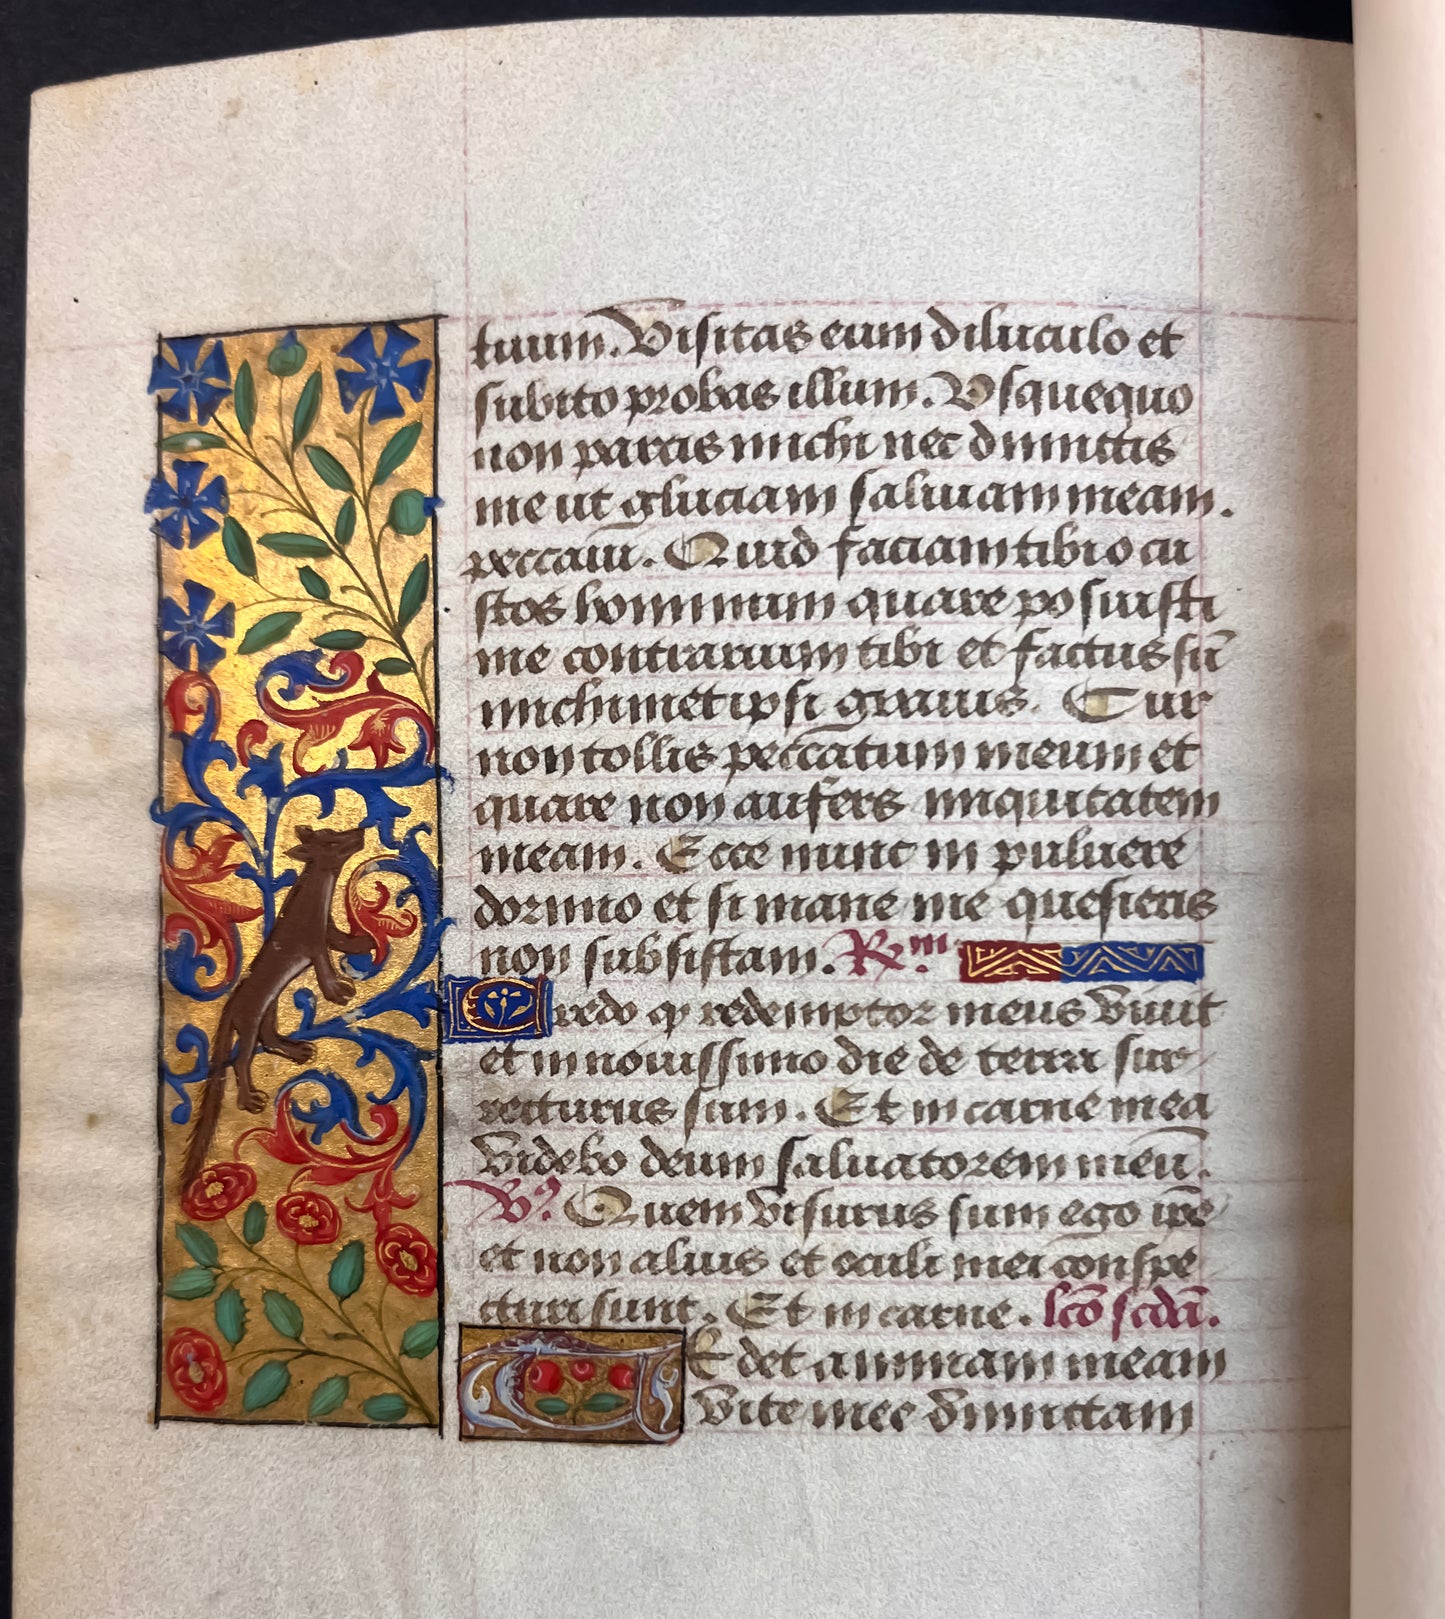 tuum. Visitas eum diluculo et
subito probas illum. Vsquequo
non parcis michi nec dimittis
me ut gluciam saliuam meam.
peccaui. Quid faciam tibi o cu
stos hominum quare posuisti
me contrarium tibi et factus sū
michimet ipsi grauis. Cur
non tollis peccatum meum et
quare non aufers iniquitatem
meam. Ecce nunc in puluere
dormio et si mane me quesieris
non subsistam. Rx.m
Credo ꝙ redemptor meus viuit
et in nouissimo die de terra sur
recturus sum. Et in carne mea
videbo deum saluatorem meū.
V̊. Quem visurus sum ego ip̄e
et non alius et oculi mei conspe
cturi sunt. Et in carne. lcō scdā.
TEdet animam meam
vite mee dimittam